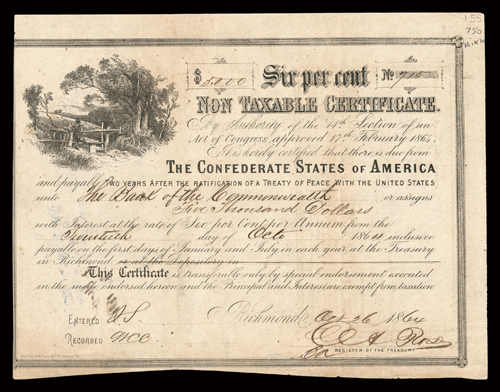 155
750
$ 5000 Six per cent No 915
NON TAXABLE CERTIFICATE.
By Authority of the 14th Section of an
Act of Congress approved 17th February 1864.
It is hereby certified that there is due from
THE CONFEDERATE STATES OF AMERICA
and payable TWO YEARS AFTER THE RATIFICATION OF A TREATY OF PEACE WITH THE UNITED STATES
unto The Bank of the Commonwealth or assigns
Five Thousand Dollars
with Interest at the rate of Six per Cent per Annum from the
Twentieth day of Octo 1864 inclusive
payable on the first days of January and July in each year at the Treasury
in Richmond or at the Depository in
This Certificate is transferable only by special endorsement executed
in the mode endorsed hereon and the Principal and Interest are exempt from taxation
Richmond Oct 26 1864
ENTERED
RECORDED WCC
REGISTER OF THE TREASURY